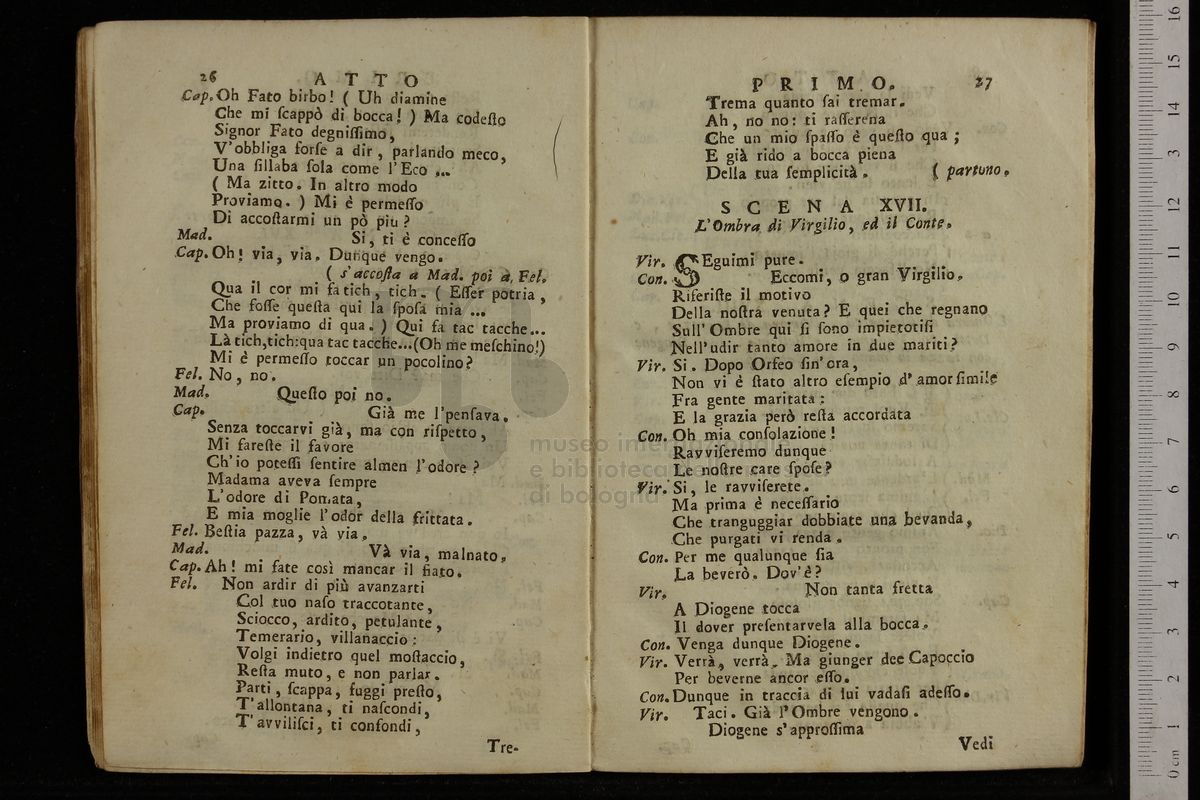 26 ATTO
Cap. Oh Fato birbo! ( Uh diamine
Che mi ſcappò di bocca! ) Ma codeſto
Signor Fato degniſſimo,
V'obbliga forſe a dir, parlando meco,
Una ſillaba ſola come l'Eco ...
( Ma zitto. In altro modo
Proviamo. ) Mi è permeſſo
Di accoſtarmi un pò più?
Mad. Si, ti è conceſſo
Cap. Oh! via, via. Dunque vengo.
( s'accoſta a Mad. poi a Fel.
Qua il cor mi fa tich, tich. ( Eſſer potria,
Che foſſe queſta qui la ſpoſa mia ...
Ma proviamo di qua. ) Qui fa tac tacche...
Là tich, tich: qua tac tacche...(Oh me meſchino!)
Mi è permeſſo toccar un pocolino?
Fel. No, no.
Mad. Queſto poi no.
Cap. Già me l'penſava.
Senza toccarvi già, ma con riſpetto,
Mi fareſte il favore
Ch'io poteſſi ſentire almen l'odore?
Madama aveva ſempre
L'odore di Pomata,
E mia moglie l'odor della frittata.
Fel. Beſtia pazza, và via.
Mad. Và via, malnato.
Cap. Ah! mi fate così mancar il fiato.
Fel. Non ardir di più avanzarti
Col tuo naſo traccotante,
Sciocco, ardito, petulante,
Temerario, villanaccio:
Volgi indietro quel moſtaccio,
Reſta muto, e non parlar.
Parti, ſcappa, fuggi preſto,
T'allontana, ti naſcondi,
T'avviliſci, ti confondi,
Tre-
PRIMO. 27
Trema quanto fai tremar.
Ah, no no: ti raſſerena
Che un mio ſpaſſo è queſto qua;
E già rido a bocca piena
Della tua ſemplicità. ( partono.
SCENA XVII.
L'Ombra di Virgilio, ed il Conte.
Vir. SEguimi pure.
Con. Eccomi, o gran Virgilio.
Riferiſte il motivo
Della noſtra venuta? E quei che regnano
Sull'Ombre qui ſi ſono impietotiſi
Nell'udir tanto amore in due mariti?
Vir. Si. Dopo Orfeo ſin'ora,
Non vi è ſtato altro eſempio d'amor ſimile
Fra gente maritata:
E la grazia però reſta accordata
Con. Oh mia conſolazione!
Ravviſeremo dunque
Le noſtre care ſpoſe?
Vir. Si, le ravviſerete.
Ma prima è neceſſario
Che tranguggiar dobbiate una bevanda,
Che purgati vi renda.
Con. Per me qualunque ſia
La beverò. Dov'è?
Vir. Non tanta fretta
A Diogene tocca
Il dover preſentarvela alla bocca.
Con. Venga dunque Diogene.
Vir. Verrà, verrà. Ma giunger dee Capoccio
Per beverne ancor eſſo.
Con. Dunque in traccia di lui vadaſi adeſſo.
Vir. Taci. Già l'Ombre vengono.
Diogene s'approſſima
Vedi
museo internazionale
e biblioteca della musica
di bologna